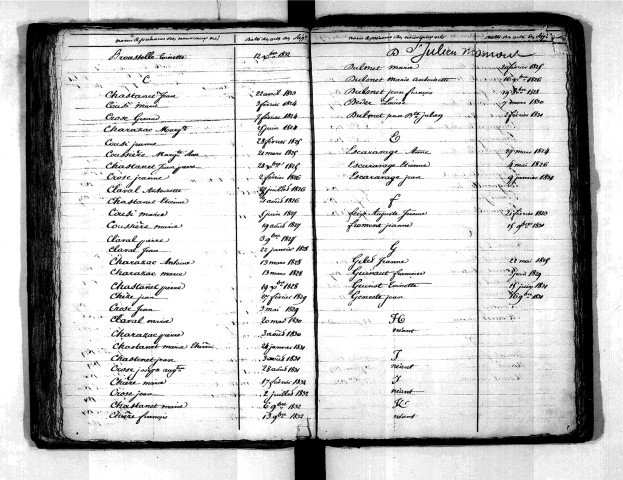 noms et prénoms des nouveaux nés dates des actes de
Brousselle Toinette 12 Xbre 1832
C
Chastanet Jean 22 avril 1823
Coudi marie 3 février 1824
Crose 7 février 1824
Charazac Margte 28 juin 1824
Coudi jeanne 28 février 1825
Coussière Margte 21 mars 1825
Chastanet 22 Xbre 1825
Crose jeanne 2 février 1826
Claval Antoinette juillet 1826
Chastanet Etienne 3 août 1826
Coudi marie 5 juin 1827
Coussière marie 19 août 1827
Claval pierre 3 9bre 1827
Claval Jean 22 janvier 1828
Charazac Antoine 13 mars 1828
Charazac marie 13 mars 1828
Chastanet pierre 19 Xbre 1828
Chèze jean 17 février 1829
Crose Jean 3 mai 1829
Claval marie 20 mai 1830
Charazac pierre 3 août 1830
Chastanet marie 28 janvier 1831
Chastanet jean 3 août 1831
Crose joseph 28 août 1831
Chèze marie 17 février 1832
Crose jean 2 juillet 1832
Chastanet marie 6 9bre 1832
Chèze françois 13 9bre 1832
noms et prénoms des nouveaux nés dates des actes de
D St Julien
Dulmet marie 20 février 1825
Dulmet marie Antoinette 16 1826
Dulmet jean françois 19 1828
Louise 7 mars 1830
Dulmet jean Bte julien 2 février 1831
E
Escaravage Anne 27 mars 1824
Escaravage Etienne 4 mai 1826
Escaravage jean 9 janvier 1831
F
Auguste 21 février 1823
froment jeanne 15 9bre 1831
G
Jeanne 22 mai 1825
françoise avril 1829
Guinot Toinette 15 juin 1831
Geneste jean 16 9bre 1831
H
néant
I
néant
J
néant
K
néant